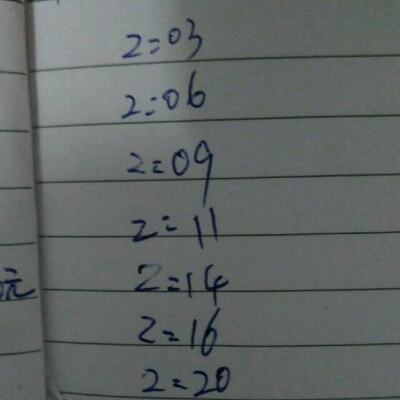 2:03
2:06
2:09
2:11
元
2:14
2:16
2:20